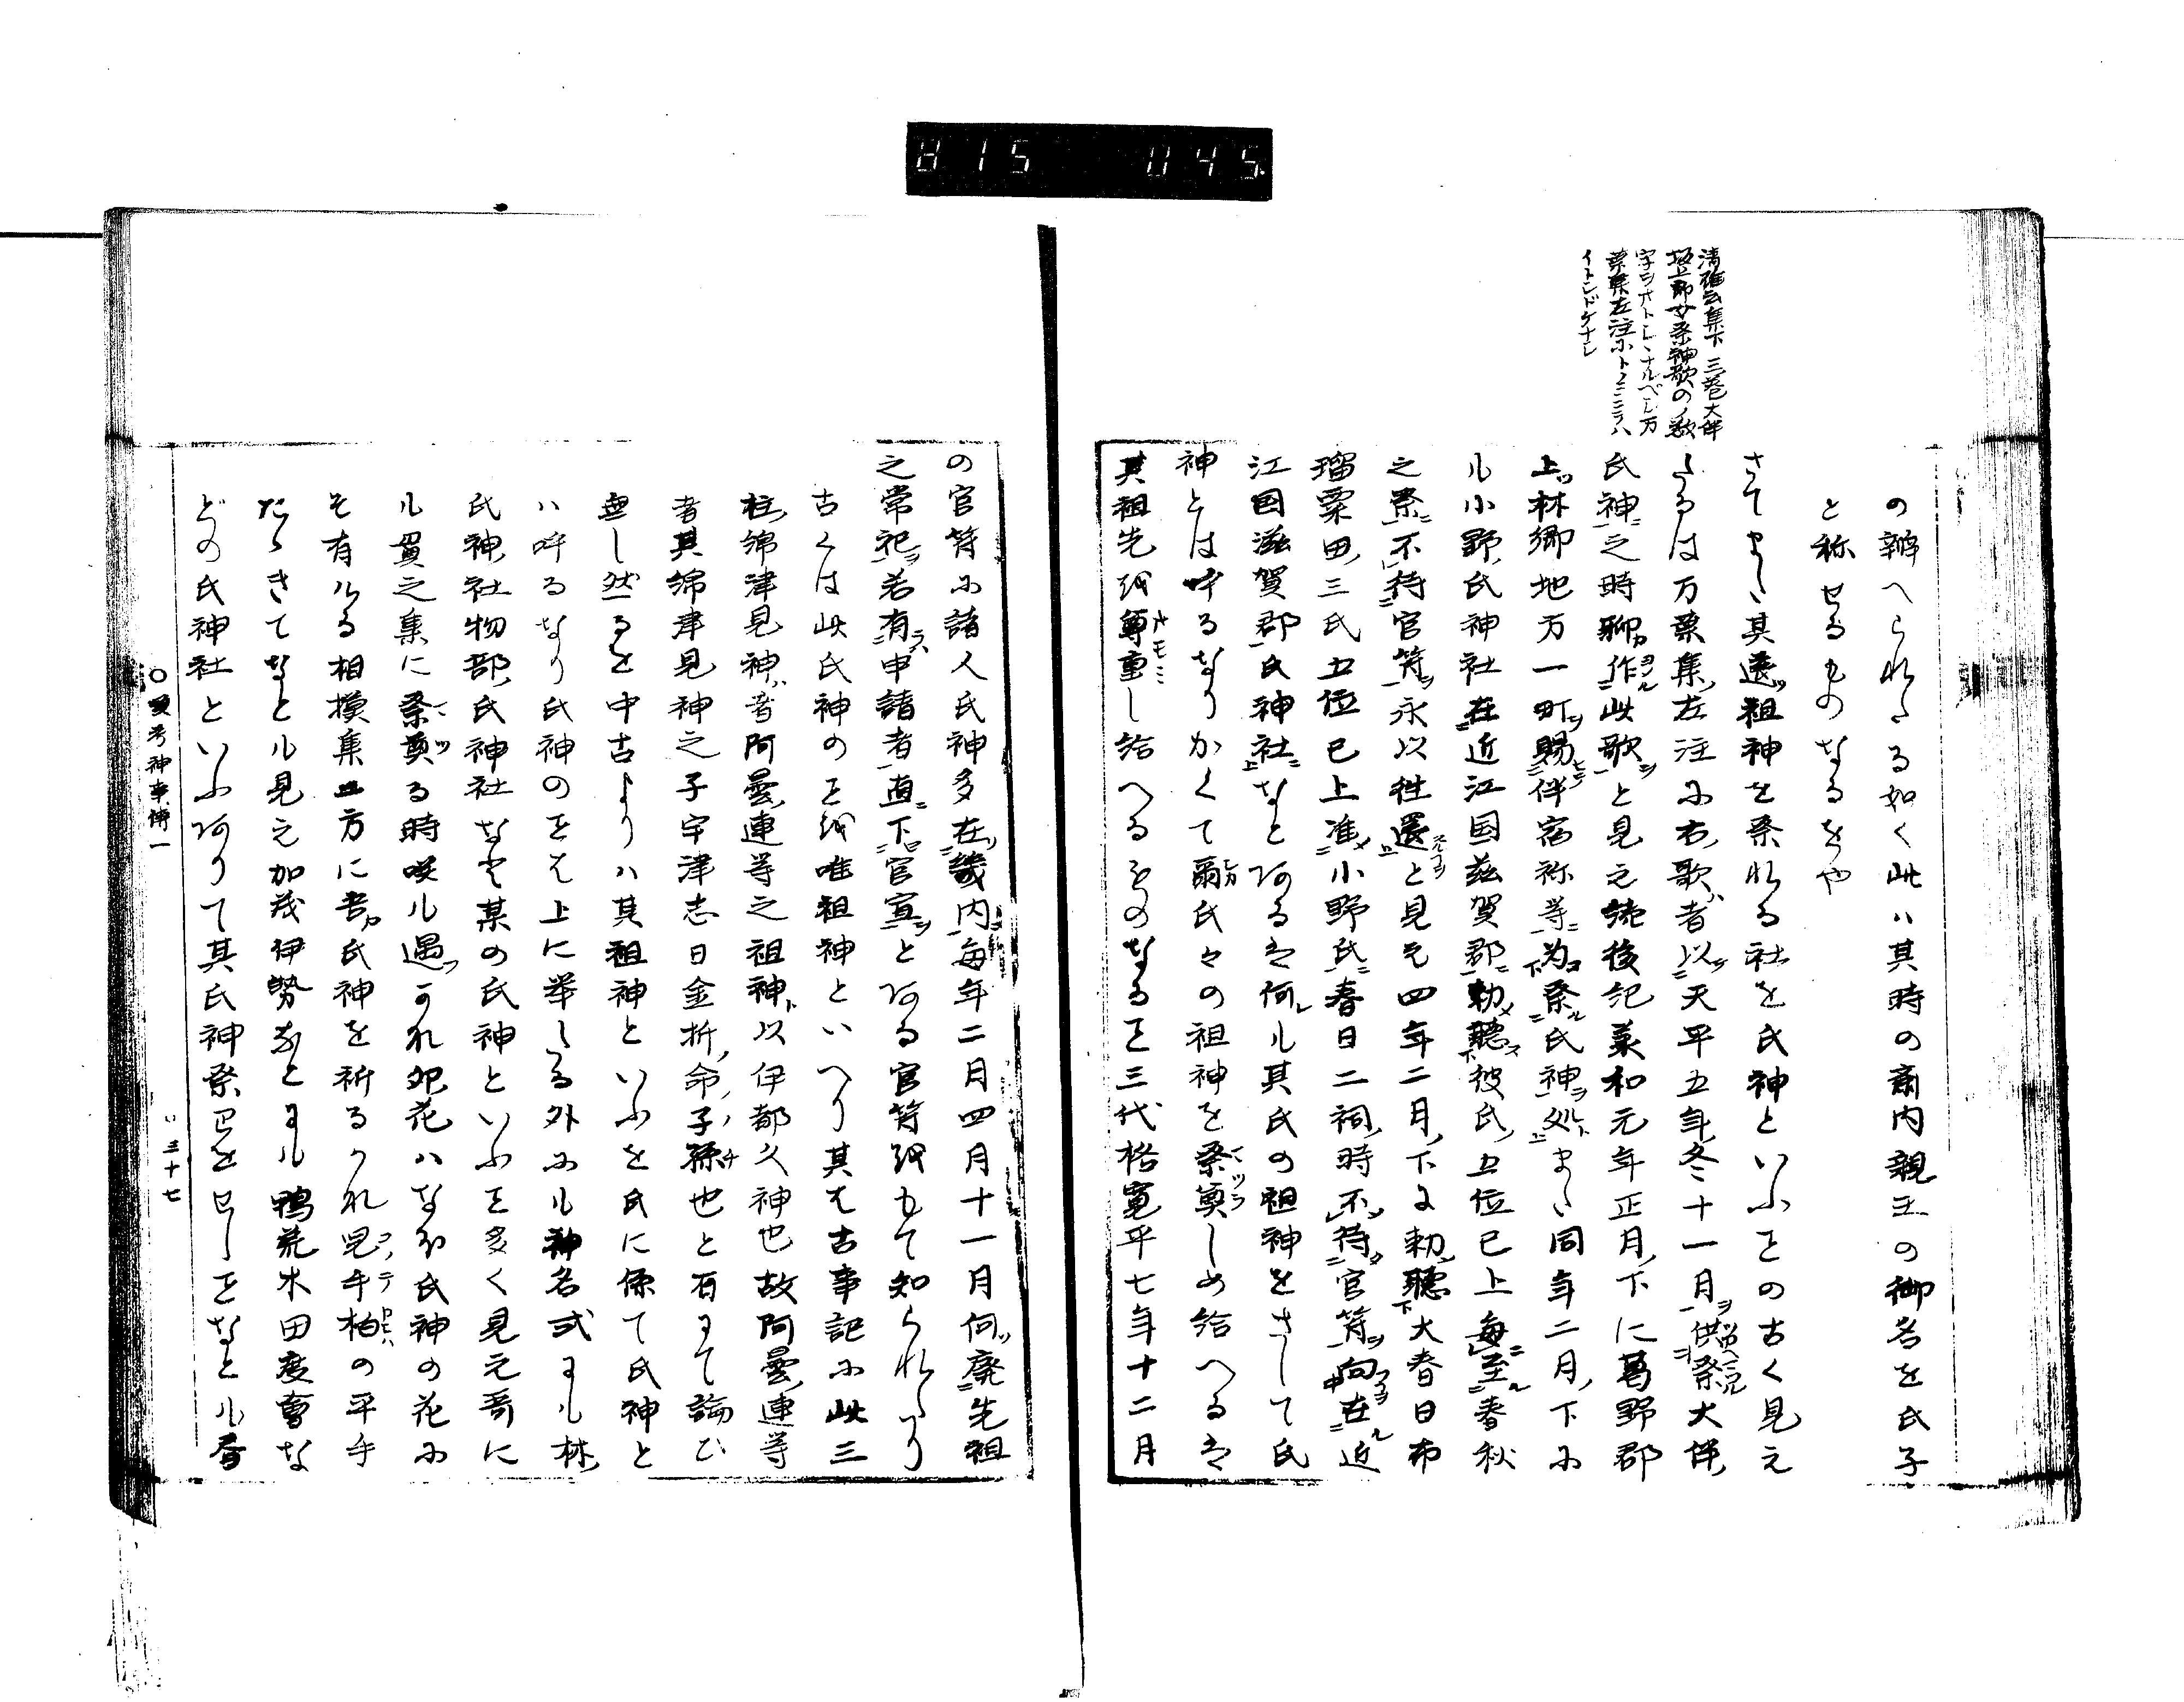 815 045
清雄云集下三巻大伴
坂上郎女祭神歌の歌
字ヲオトレシナルベシ万
葉集左注ニ
イトンドケナレ
の辨へられたる如く此ハ其時の斎内親王の御名を氏子
と称せるものなるをや
さてまた其遠祖神を祭れる社を氏神といふことの古く見え
たるは万葉集左注に右歌者以天平五年冬十一月供祭大伴
氏神之時聊作此歌と見え続後記承和元年正月下に葛野郡
上林郷地方一町賜伴宿祢等為祭氏神処また同年二月下に
ル小野氏神社在近江国滋賀郡勅聴彼氏五位已上毎至春秋
之祭不待官符永以往還と見え四年二月下に勅聴大春日布
瑠粟田三氏五位已上准小野氏春日二祠時不待官符向在近
江国滋賀郡氏神社なとあるは何ル其氏の祖神をさして氏
神とは呼るなりかくて爾氏々の祖神を祭奠しめ給へるは
其祖先を尊重し給へるものなること三代格寛平七年十二月
の官符に諸人氏神多在畿内毎年二月四月十一月何廃先祖
之常祀若有申請者直下官宣とある官符をもて知られたり
古くは此氏神のことを唯祖神といへり其は古事記に此三
柱綿津見神者阿曇連等之祖神以伊都久神也故阿曇連等
者其綿津見神之子宇津志日金析命子孫也と有にて論ひ
無し然るを中古よりハ其祖神といふを氏に係て氏神と
ハ呼るなり氏神のことは上に挙たる外にル神名式にル林
氏神社物部氏神社など某の氏神といふこと多く見え哥に
ル貫之集に祭奠る時咲ル遇かれ卯花ハなほ氏神の花に
そ有ルる相模集四方に吾氏神を祈るかれ児手柏の平手
たゝきてなとル見え加茂伊勢なとにル鴨荒木田度會な
どの氏神社といふありて其氏神祭をせしことなとル春
○愛考神事傳一
三十七